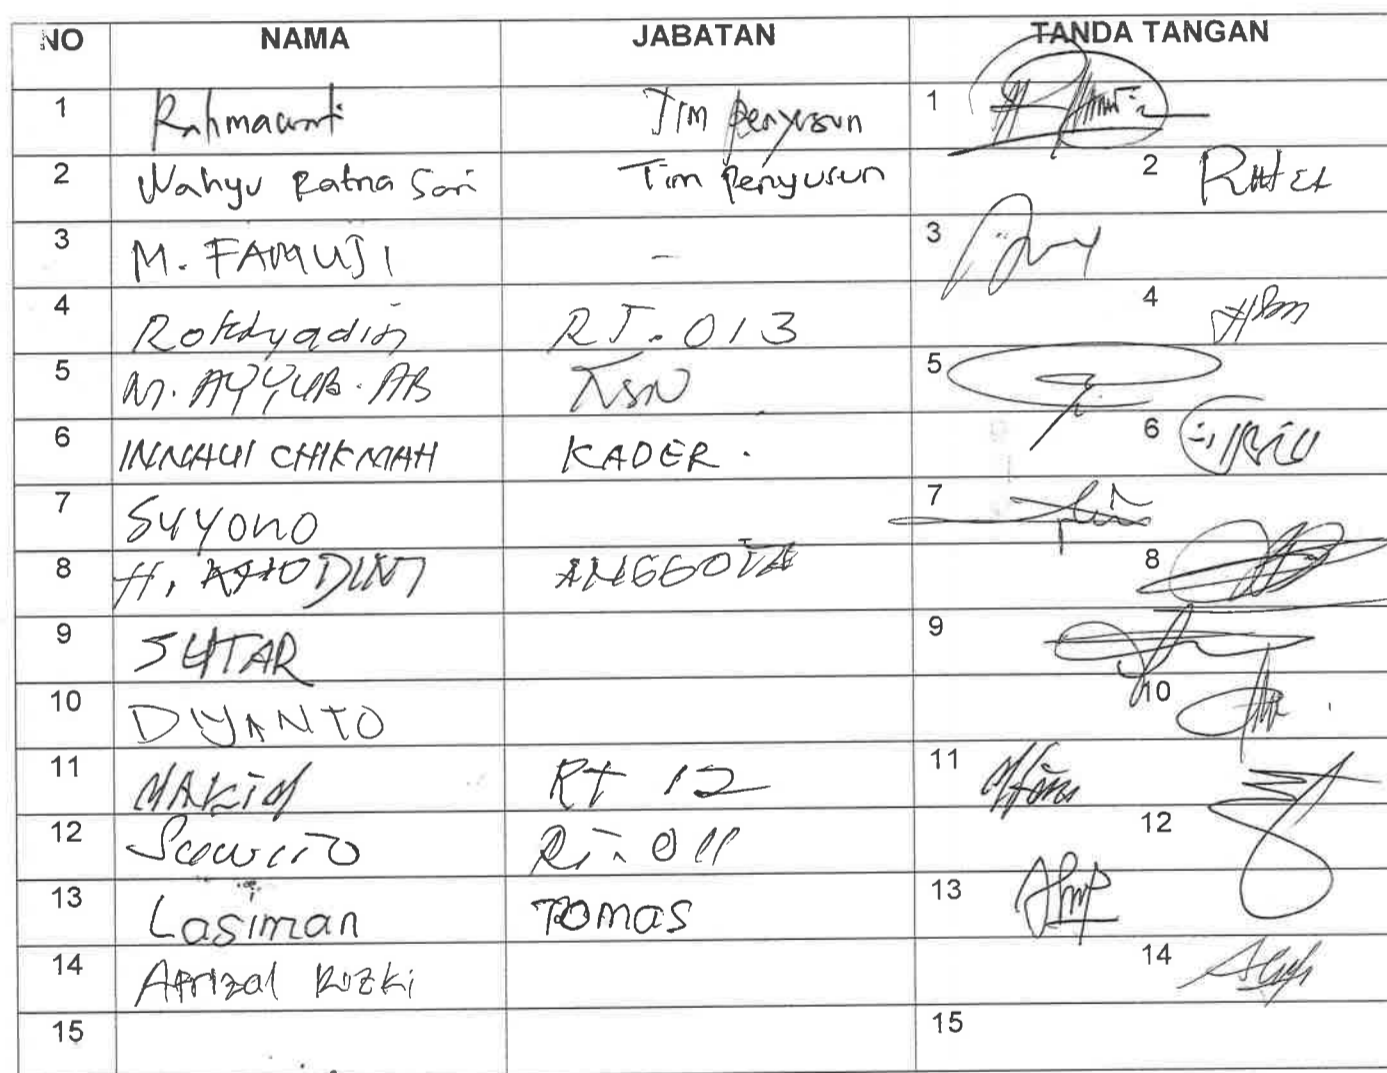 NO NAMA JABATAN TANDA TANGAN
1 Rahmawati Tim penyusun 1
2 Wahyu Ratna Sari Tim Penyusun 2
3 M. FAMUJI - 3
4 Rokhyadin RT. 013 4
5 M. AYYUB. AB 5
6 INNAUL CHIKMAH KADER. 6
7 SUYONO 7
8 H. KHODIM ANGGOTA 8
9 SUTAR 9
10 DIYANTO 10
11 HAKIM RT 12 11
12 RT. 011 12
13 Lasiman TOMAS 13
14 Afrizal Rizki 14
15 15